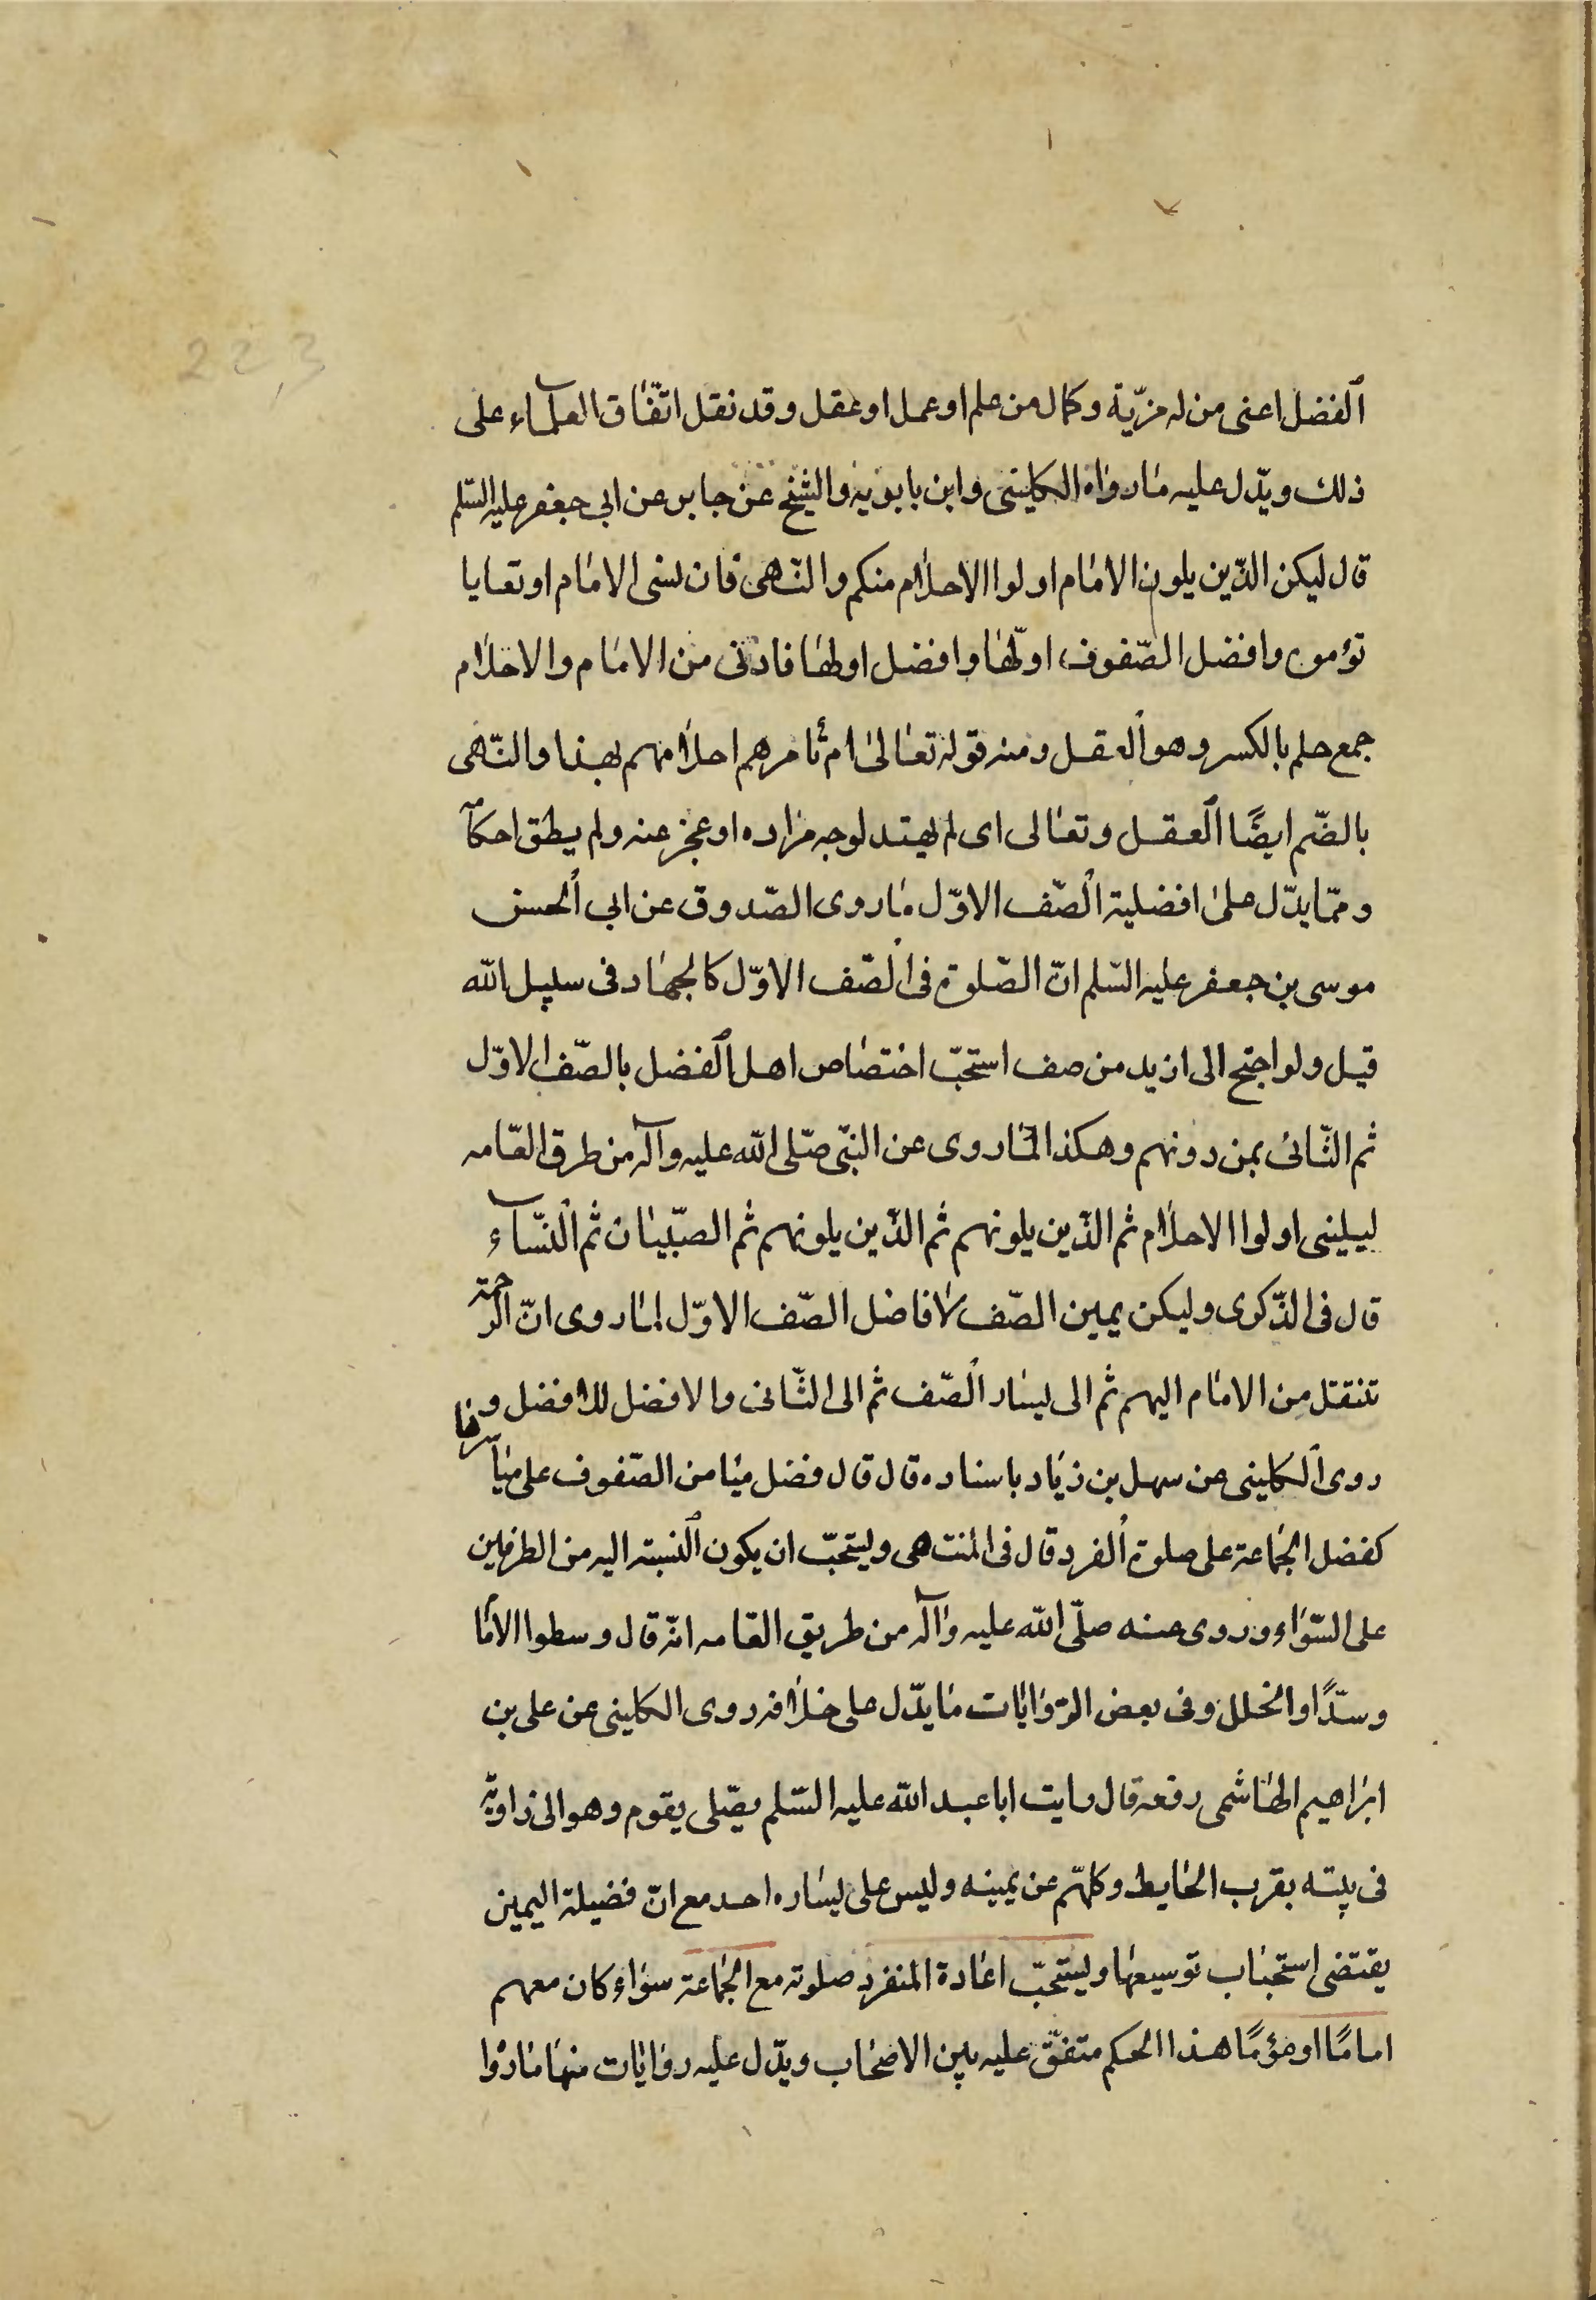 223
الفضل اعنى من له مزيّة وكمال من علم او عمل او عقل وقد نقل اتّفاق العلمآء على
ذلك ويدّل عليه ما رواه الكلينى وابن بابويه والشيخ عن جابر عن ابي جعفر عليه السّلم
قال ليكن الذّين يلون الامام اولوا الاحلام منكم والنّهى فان نسى الامام او تعايا
قوموه وافضل الصّفوف اوّلها وافضل اولها فادنى من الامام والاحلام
جمع حلم بالكسر وهو العقل ومنه قوله تعالى ام تأمرهم احلامهم بهذا والنّهى
بالضّم ايضًا العقل وتعالى اى لم يهتد لوجه مراده او عجز عنه ولم يطق احكآ
وممّا يدّل على افضلية الصّف الاوّل ما روى الصّدوق عن ابي الحسن
موسى بن جعفر عليه السّلم انّ الصّلوة فى الصّف الاوّل كالجهاد فى سبيل الله
قيل ولو احتج الى ازيد من صف استحبّ اختصاص اهل الفضل بالصّف الاوّل
ثم الثّانى بمن دونهم وهكذا لما روى عن النبّى صّلى الله عليه وآله من طرق العّامه
ليلينى اولوا الاحلام ثم الذّين يلونهم ثم الذّين يلونهم ثم الصّبيان ثم النّسآء
قال فى الذّكرى وليكن يمين الصّف لافاضل الصّف الاوّل لما روى انّ الرحمة
تنقتل من الامام اليهم ثم الى يسار الصّف ثم الى الثّانى والافضل للافضل و
روى الكلينى عن سهل بن زياد باسناده قال قال فضل ميامن الصّفوف على مياسرها
كفضل الجماعة على صلوة الفرد قال فى المنتهى ويستحبّ ان يكون النسبته اليه من الطرفين
على السّواء وروى عنه صلّى الله عليه وآله من طريق العامه انّه قال وسطوا الاما
وسدًّوا الخلل وفى بعض الرّوايات ما يدّل على خلافه روى الكلينى عن على بن
ابراهيم الهاشمى رفعه قال رايت ابا عبد الله عليه السّلم يصّلى بقوم وهو الى زاوية
فى بيته بقرب الحايط وكلهّم عن يمينه وليس على يساره احد مع انّ فضيلة اليمين
يقتضى استحباب توسيعها ويستحبّ اعادة المنفرد صلوته مع الجماعة سواء كان معهم
امامًا او مؤمًا هذا الحكم متفّق عليه بين الاصحاب ويدّل عليه روايات منها ما روا